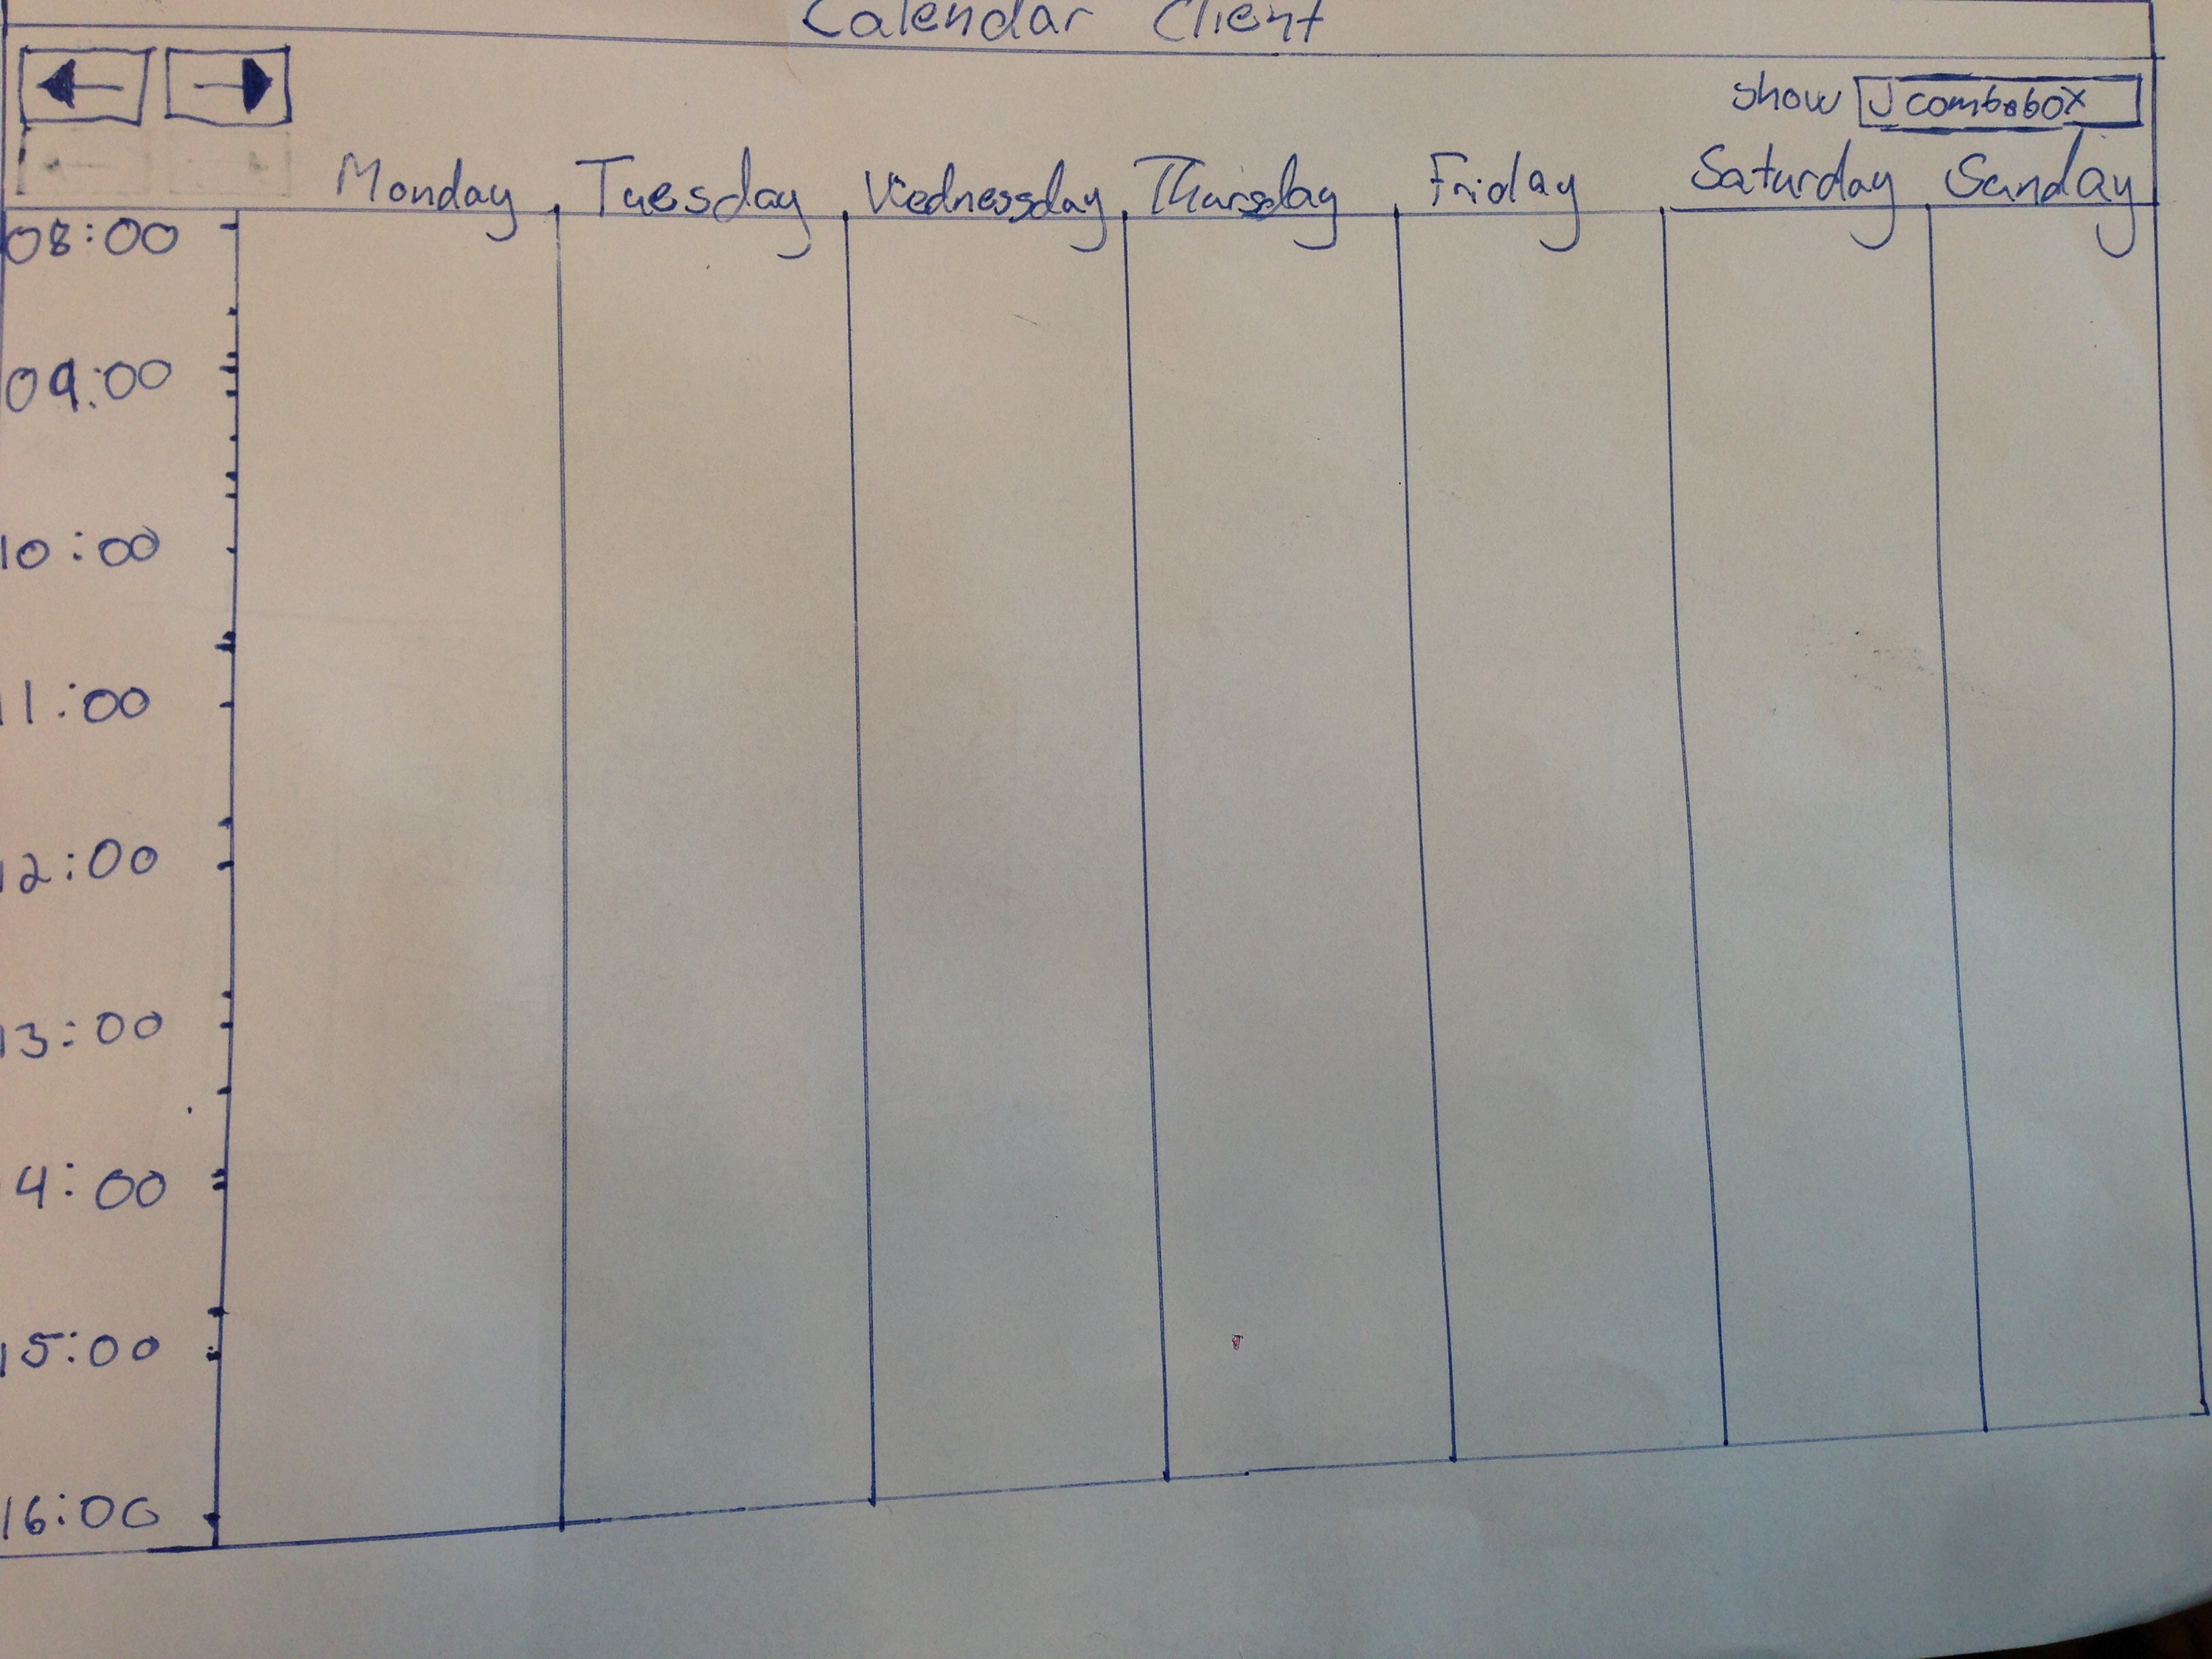 Calendar Client
show Jcombobox
Monday Tuesday Wednessday Thursday Friday Saturday Sunday
08:00
09:00
10:00
11:00
12:00
13:00
14:00
15:00
16:00